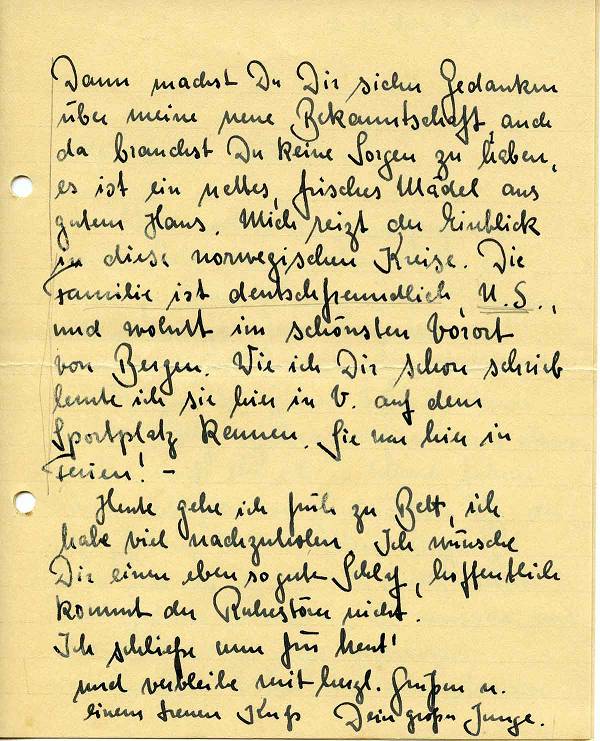 Dann machst Du Dir sicher Gedanken
über meine neue Bekanntschaft, auch
da brauchst Du keine Sorgen zu haben,
es ist ein nettes, frisches Mädel aus
gutem Haus. Mich reizt der Einblick
in diese norwegischen Kreise. Die
Familie ist deutschfreundlich, N.S.,
und wohnt im schönsten Vorort
von Bergen. Wie ich Dir schon schrieb
lernte ich sie hier in V. auf dem
Sportplatz kennen. Sie war hier in
Ferien! –
Heute gehe ich früh zu Bett, ich
habe viel nachzuholen. Ich wünsche
Dir einen eben so guten Schlaf, hoffentlich
kommt der Ruhestörer nicht.
Ich schließe nun für heut!
und verbleibe mit herzl. Grüßen u.
einem treuen Kuß Dein großer Junge.